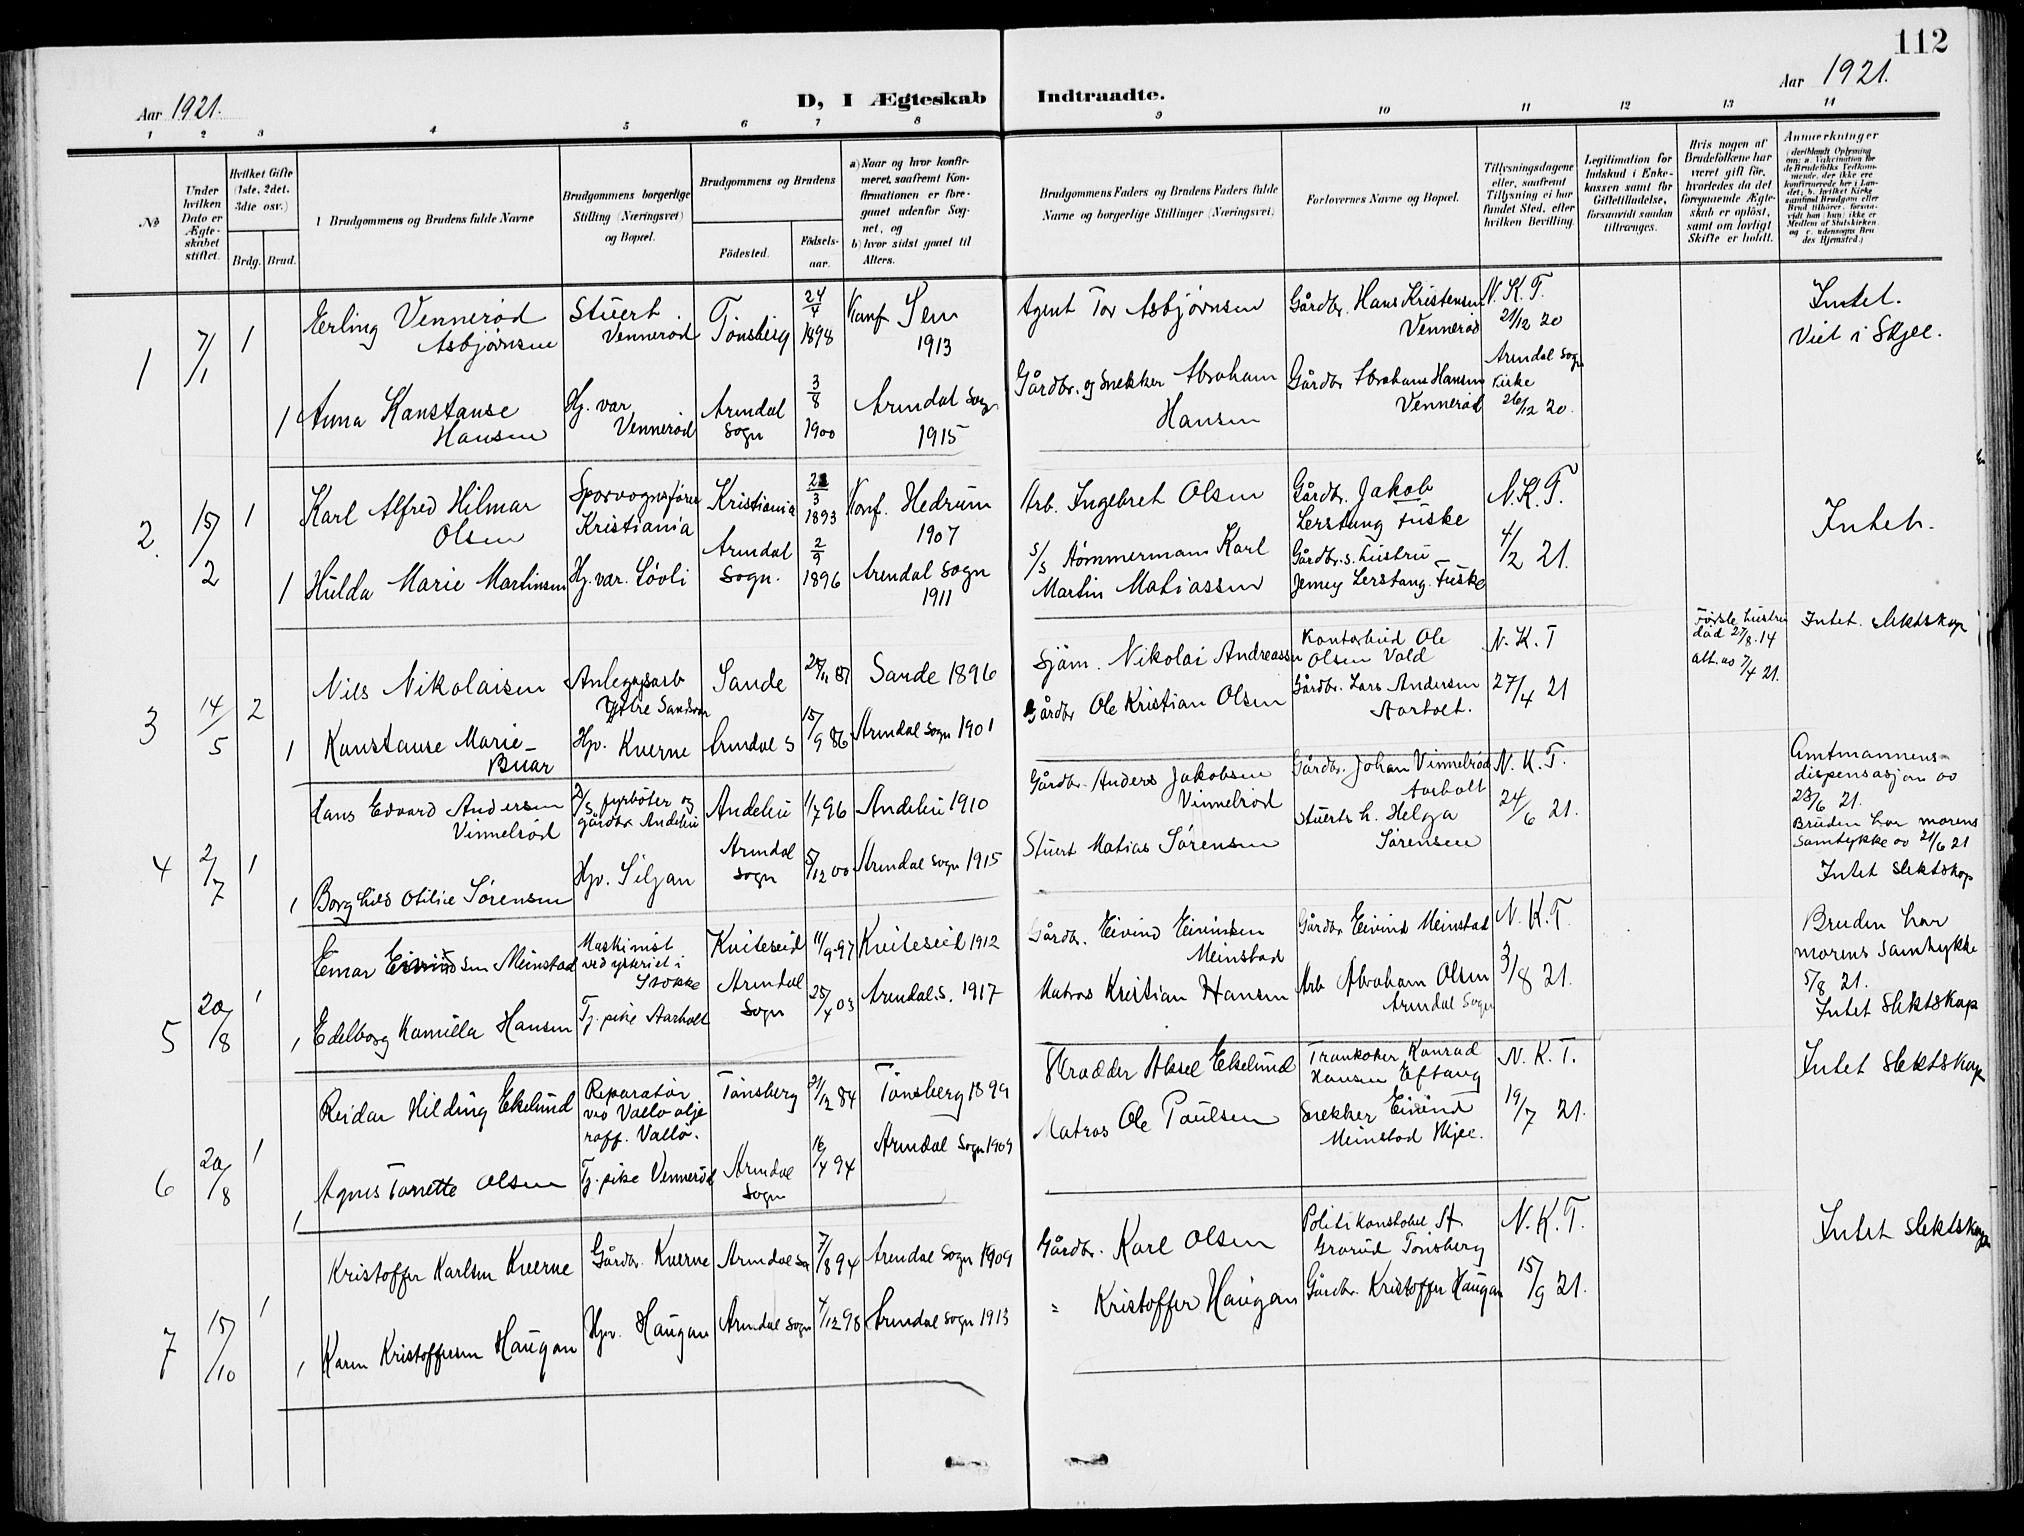 112
Aar 1921.
D, I Ægteskab Indtraadte.
Aar 1921.
1 2 3 4 5 6 7 8 9 10 11 12 13 14
No
Under hvilken Dato er Ægteskabet stiftet.
Hvilket Gifte (1ste, 2det, 3die osv.)
Brdg. Brud.
Brudgommens og Brudens fulde Navne
Brudgommens borgerlige Stilling (Næringsvei) og Bopæl.
Brudgommens og Brudens
Födested.
Födselsaar.
a) Naar og hvor konfirmeret, saafremt Konfirmationen er foregaaet udenfor Sognet, og
b) hvor sidst gaaet til Alters.
Brudgommens Faders og Brudens Faders fulde Navne og borgerlige Stillinger (Næringsvei)
Forlovernes Navne og Bopæl.
Tillysningsdagene eller, saafremt Tillysning ei har fundet Sted, efter hvilken Bevilling.
Legitimation for Indskud i Enkekassen samt for Giftetilladelse, forsaavidt saadan tiltrænges.
Hvis nogen af Brudefolkene har været gift før, hvorledes da det foregaaende Ægteskab er oplöst, samt om lovligt Skifte er holdt.
Anmærkninger
(deriblandt Oplysning om: a. Vakcination for de Brudefolks Vedkommende, der ikke ere konfirmerede her i Landet; b. hvilket Kirkesamfund Brudgom eller Brud tilhörer, forsaavidt han (hun) ikke er Medlem af Statskirken og c. udensogns Brudes Hjemsted.)
1 7/1 1 Erling Vennerød Asbjørnsen Stuert Vennerød Tönsberg 24/4 1898 Konf Sem 1913 Agent Tor Asbjørnsen Gårdbr. Hans Kristensen Vennerød N. K. T. 21/12 20 Intet. Viet i Skjee.
1 Anna Konstanse Hansen Hj. var Vennerød Arendal Sogn 3/8 1900 Arendal Sogn 1915 Gårdbr. og Snekker Abraham Hansen Gårdbr Abraham Hansen Vennerød Arendal Sogn Kirke 26/12 20.
2. 15/2 1 Karl Alfred Hilmar Olsen Sporvognsfører Kristiania Kristiania 3 1893 Konf. Hedrum 1907 Arb. Ingebret Olsen Gårdbr. Jakob Lerstang Fuske N. K. T. 4/2 21. Intet.
1 Hulda Marie Martinsen Hj. var. Løvli Arendal Sogn. 2/9 1896 Arendal Sogn 1911 s/s Tømmermann Karl Martin Matiassen Gårdbr.s. hustru Jenny Lerstang. Fuske
3 14/5 2 Nils Nikolaisen Anlegsarb Ytre Sandsvær Sande /11 87 Sande 1896 Sjöm. Nikolai Andreassen Kontorbud Ole Olsen Vold N. K. T 27/4 21 Første hustru død 27/8.14 att. av 7/4 21. Intet slektskap
1 Konstanse Marie Buar Hjv. Kverne Arendal S 15/9 86 Arendal Sogn 1901 Gårdbr Ole Kristian Olsen Gårdbr. Lars Andersen Aarholt.
4 2/7 1 Hans Edvard Andersen Vinnelrød fyrbøter og gårdbr Andebu Andebu 1/7 96 Andebu 1910 Gårdbr. Anders Jakobsen Vinnelrød Gårdbr. Johan Vinnelrød Aarholt N. K. T. 24/6 21. Amtmannens dispensasjon av 23/6 21. Bruden har morens Samtykke av 21/6 21 Intet slektskap
1 Borghild Otilie Sørensen Hjv. Siljan Arendal Sogn 5/12 00 Arendal Sogn 1915 Stuert Matias Sørensen Stuerts h. Helga Sørensen
5 20/8 1 Einar Eivindsen Meinstad Maskinist ved ysteriet i Stokke Kviteseid 11/9 97 Kviteseid 1912 Gårdbr. Eivind Eivindsen Meinstad Gårdbr Eivind Meinstad N. K. T. 3/8 21. Bruden har morens Samtykke 5/8 21. Intet slektskap
1 Edelborg Kamilla Hansen Tj. pike Aarholt Arendal Sogn 25/4 03 Arendal. S. 1917 Matros Kristian Hansen Arb Abraham Olsen Arendal Sogn
6 20/8 1 Reidar Hilding Ekelund Reparatør ved Vallø olje raff. Vallø. Tönsberg 21/12 84 Tønsberg 1899 Skrædder Aksel Ekelund Trankoker Konrad Hansen Eftang N. K. T. 19/7 21. Intet slektskap
1 Agnes Tonette Olsen Tj. pike Vennerød Arendal Sogn 16/4 94 Arendal Sogn 1909 Matros Ole Paulsen Snekker Eivind Meinstad Skjee.
7 15/10 1 Kristoffer Karlsen Kverne Gårdbr. Kverne Arendal So 7/8 94 Arendal Sogn 1909 Gårdbr. Karl Olsen Politikonstabel A. Grorud Tønsberg N. K. T. 15/9 21. Intet slektskap
1 Karen Kristoffersen Haugan Hjv. Haugan Arendal Sogn 4/12 98 Arendal Sogn 1913 " Kristoffer Haugan Gårdbr. Kristoffer Haugan